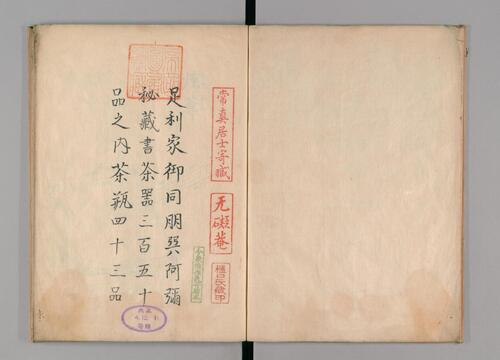 常真居士寄藏
无礙菴
樋口氏藏印
足利家御同朋巽阿彌
秘藏書茶器三百五十
品之内茶瓶四十三品